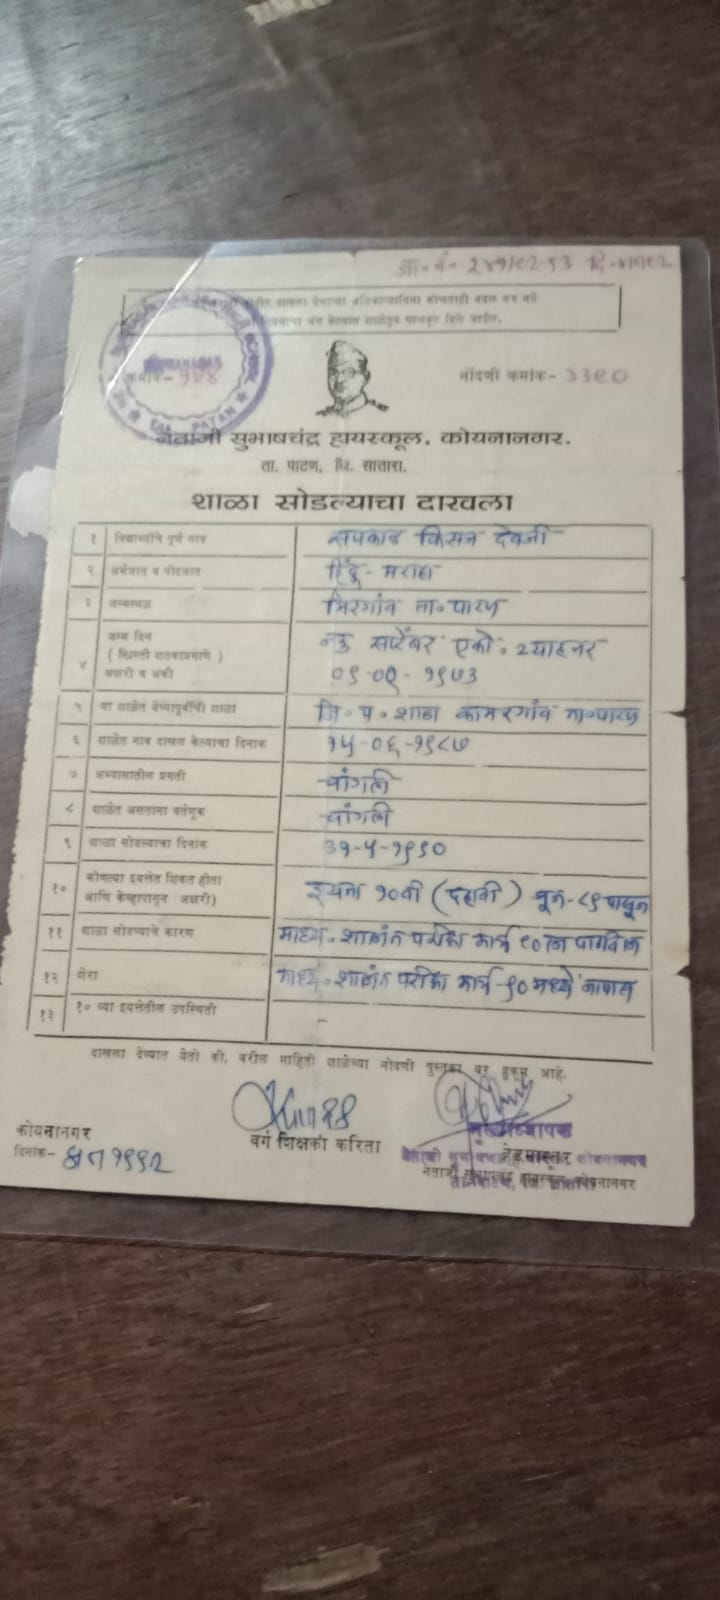 दाखला देणाऱ्या अधिकाऱ्याविना कोणताही बदल करू नये
क्रमांक-
नोंदणी क्रमांक- ३३९०
नेताजी सुभाषचंद्र हायस्कूल, कोयनानगर.
ता. पाटण, जि. सातारा.
शाळा सोडल्याचा दाखला
१ विद्यार्थ्याचे पूर्ण नाव सपकाळ किसन देवजी
२ धर्मजात व पोटजात हिंदू - मराठा
३ जन्मस्थळ मिरगांव ता॰ पाटण
जन्म दिन
४ ( ख्रिस्ती शतकाप्रमाणे ) नऊ सप्टेंबर
अक्षरी व अंकी ०९-०९-१९७३
५ या शाळेत येण्यापूर्वीची शाळा जि॰ प॰ शाळा कामरगांव ता॰ पाटण
६ शाळेत नाव दाखल केल्याचा दिनांक १५-०६-१९८७
७ अभ्यासातील प्रगती चांगली
८ शाळेत असताना वर्तणूक चांगली
९ शाळा सोडल्याचा दिनांक ३१-५-१९९०
१० कोणत्या इयत्तेत शिकत होता
आणि केव्हापासून (अक्षरी) इयत्ता १०वी (दहावी) जून-८९ पासून
११ शाळा सोडण्याचे कारण माध्य॰ शालांत परीक्षा मार्च ९०
१२ शेरा माध्य॰ शालांत परीक्षा मार्च-९० मध्ये नापास
१३ १० व्या इयत्तेतील उपस्थिती –
दाखला देण्यात येतो की, वरील माहिती शाळेच्या नोंदणी पुस्तका बर हुकूम आहे.
कोयनानगर
वर्ग शिक्षका करिता
मुख्याध्यापक
हेडमास्तर
दिनांक-
नेताजी सुभाषचंद्र हायस्कूल, कोयनानगर